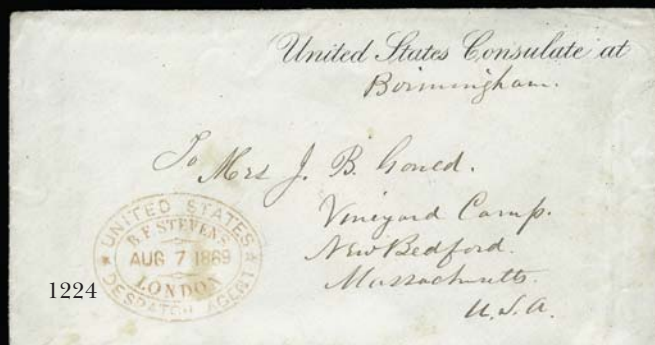 United States Consulate at
Birmingham.
To Mrs J. B. Gould.
Vineyard Camp.
New Bedford.
Massachusetts.
U.S.A.
UNITED STATES
B.F. STEVENS
AUG 7 1869
LONDON
DESPATCH AGENT
1224